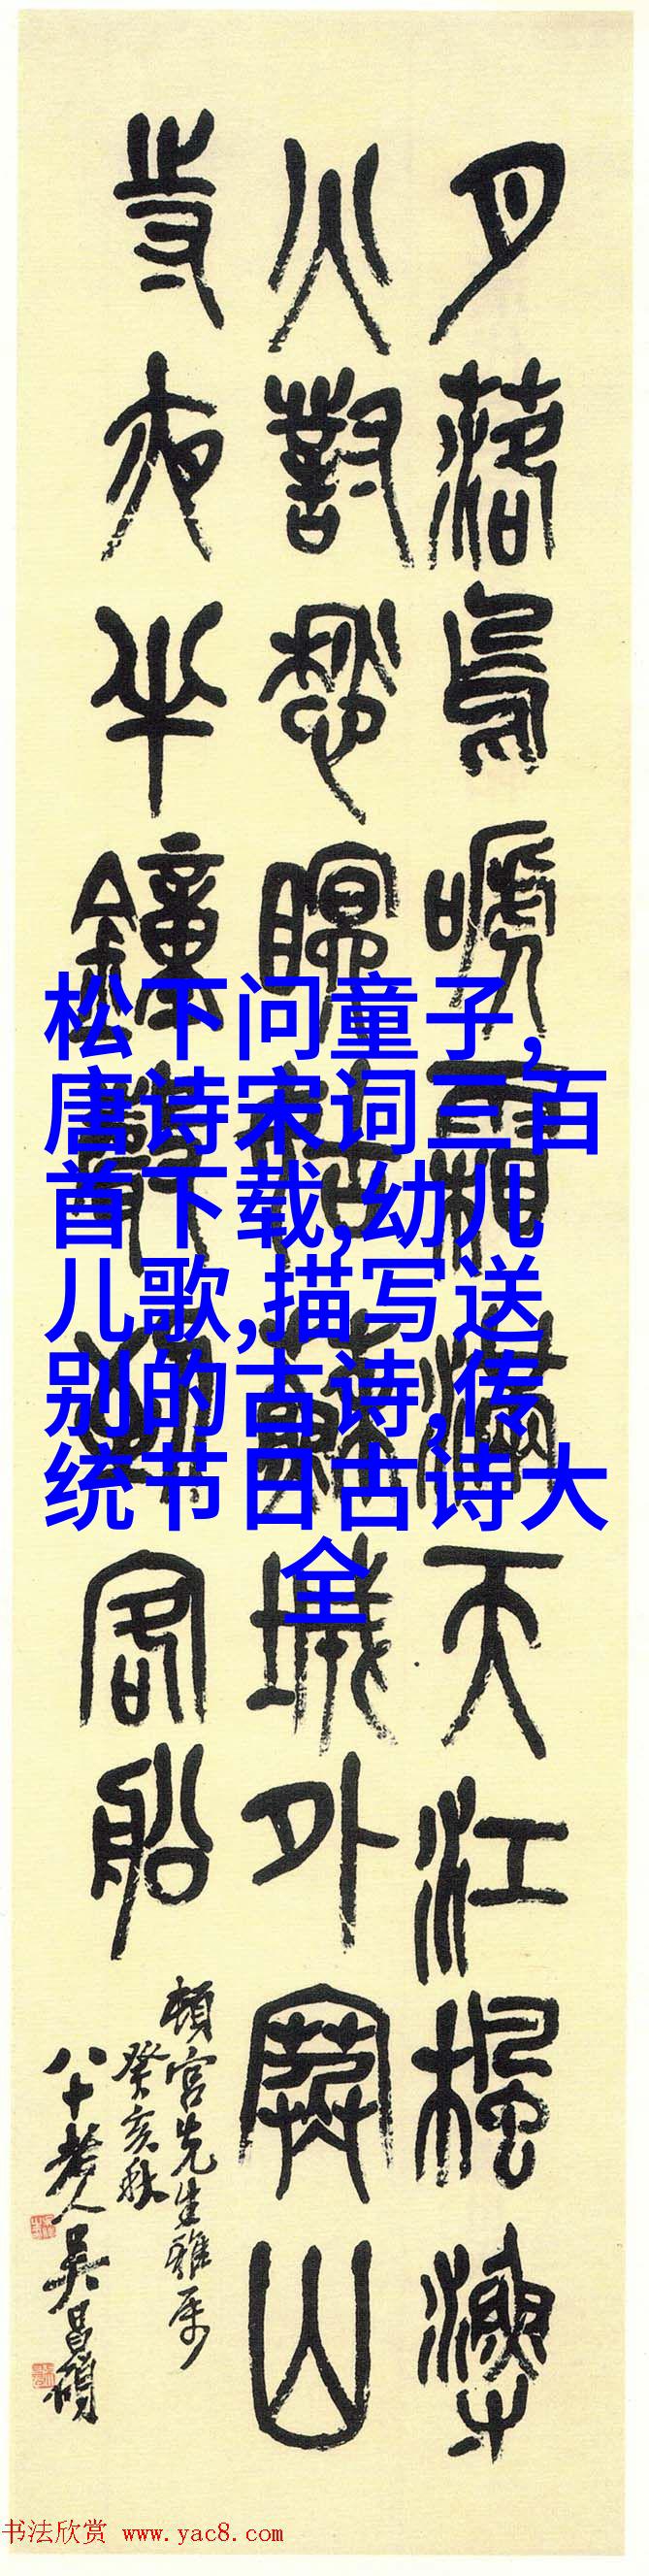 月落烏嗁霜滿天江楓漁
火對愁眠姑蘇城外寒山
寺夜半鐘聲到客船
頓宮先生雅屬
癸亥秋
八十老人吳昌碩
松下问童子,
唐诗宋词三百
首下载,幼儿
儿歌,描写送
别的古诗,传
统节日古诗大
全
书法欣赏 www.yac8.com